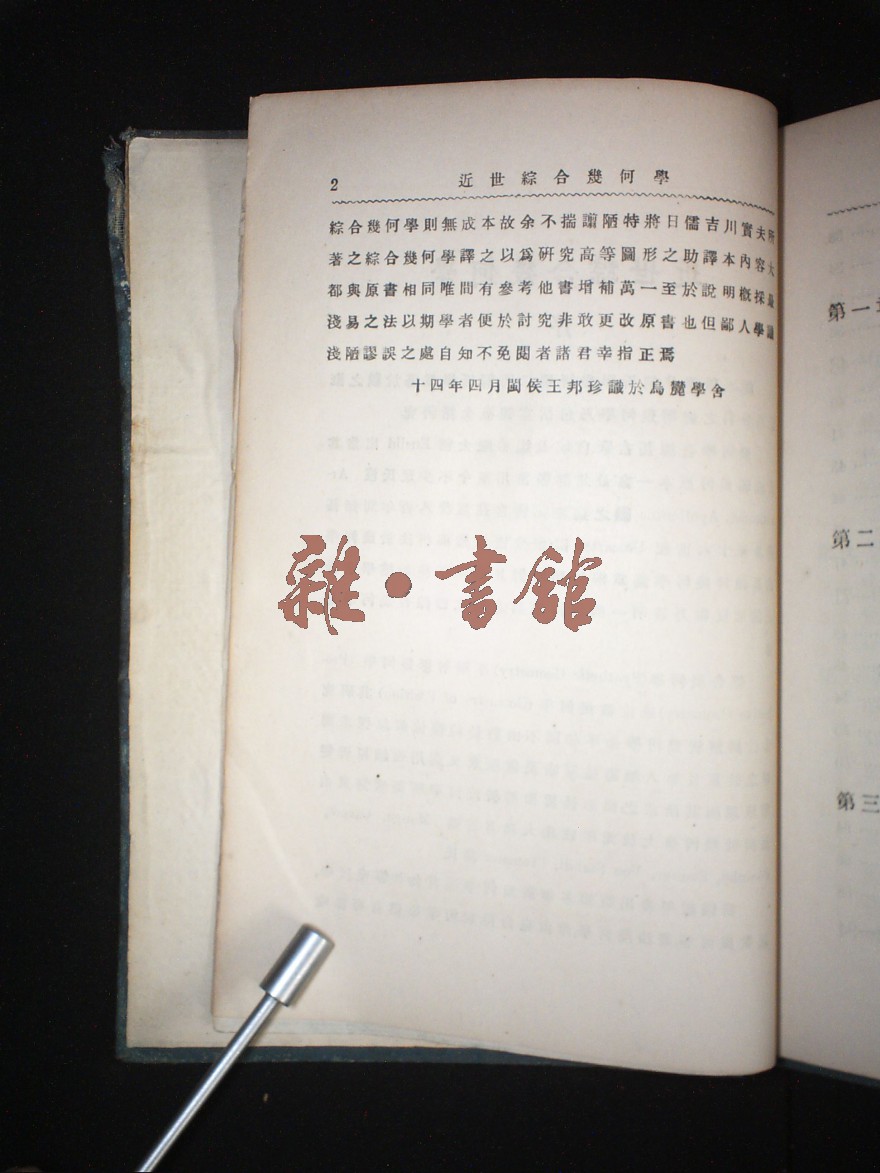 2 近世綜合幾何學
綜合幾何學則無成本故余不揣譾陋特將日儒吉川實夫所
著之綜合幾何學譯之以爲硏究高等圖形之助譯本內容大
都與原書相同唯間有參考他書增補萬一至於說明槪採最
淺易之法以期學者便於討究非敢更改原書也但鄙人學識
淺陋謬誤之處自知不免閱者諸君幸指正焉
十四年四月閩侯王邦珍識於烏麓學舍
雜·書館
第一章
第二
第三